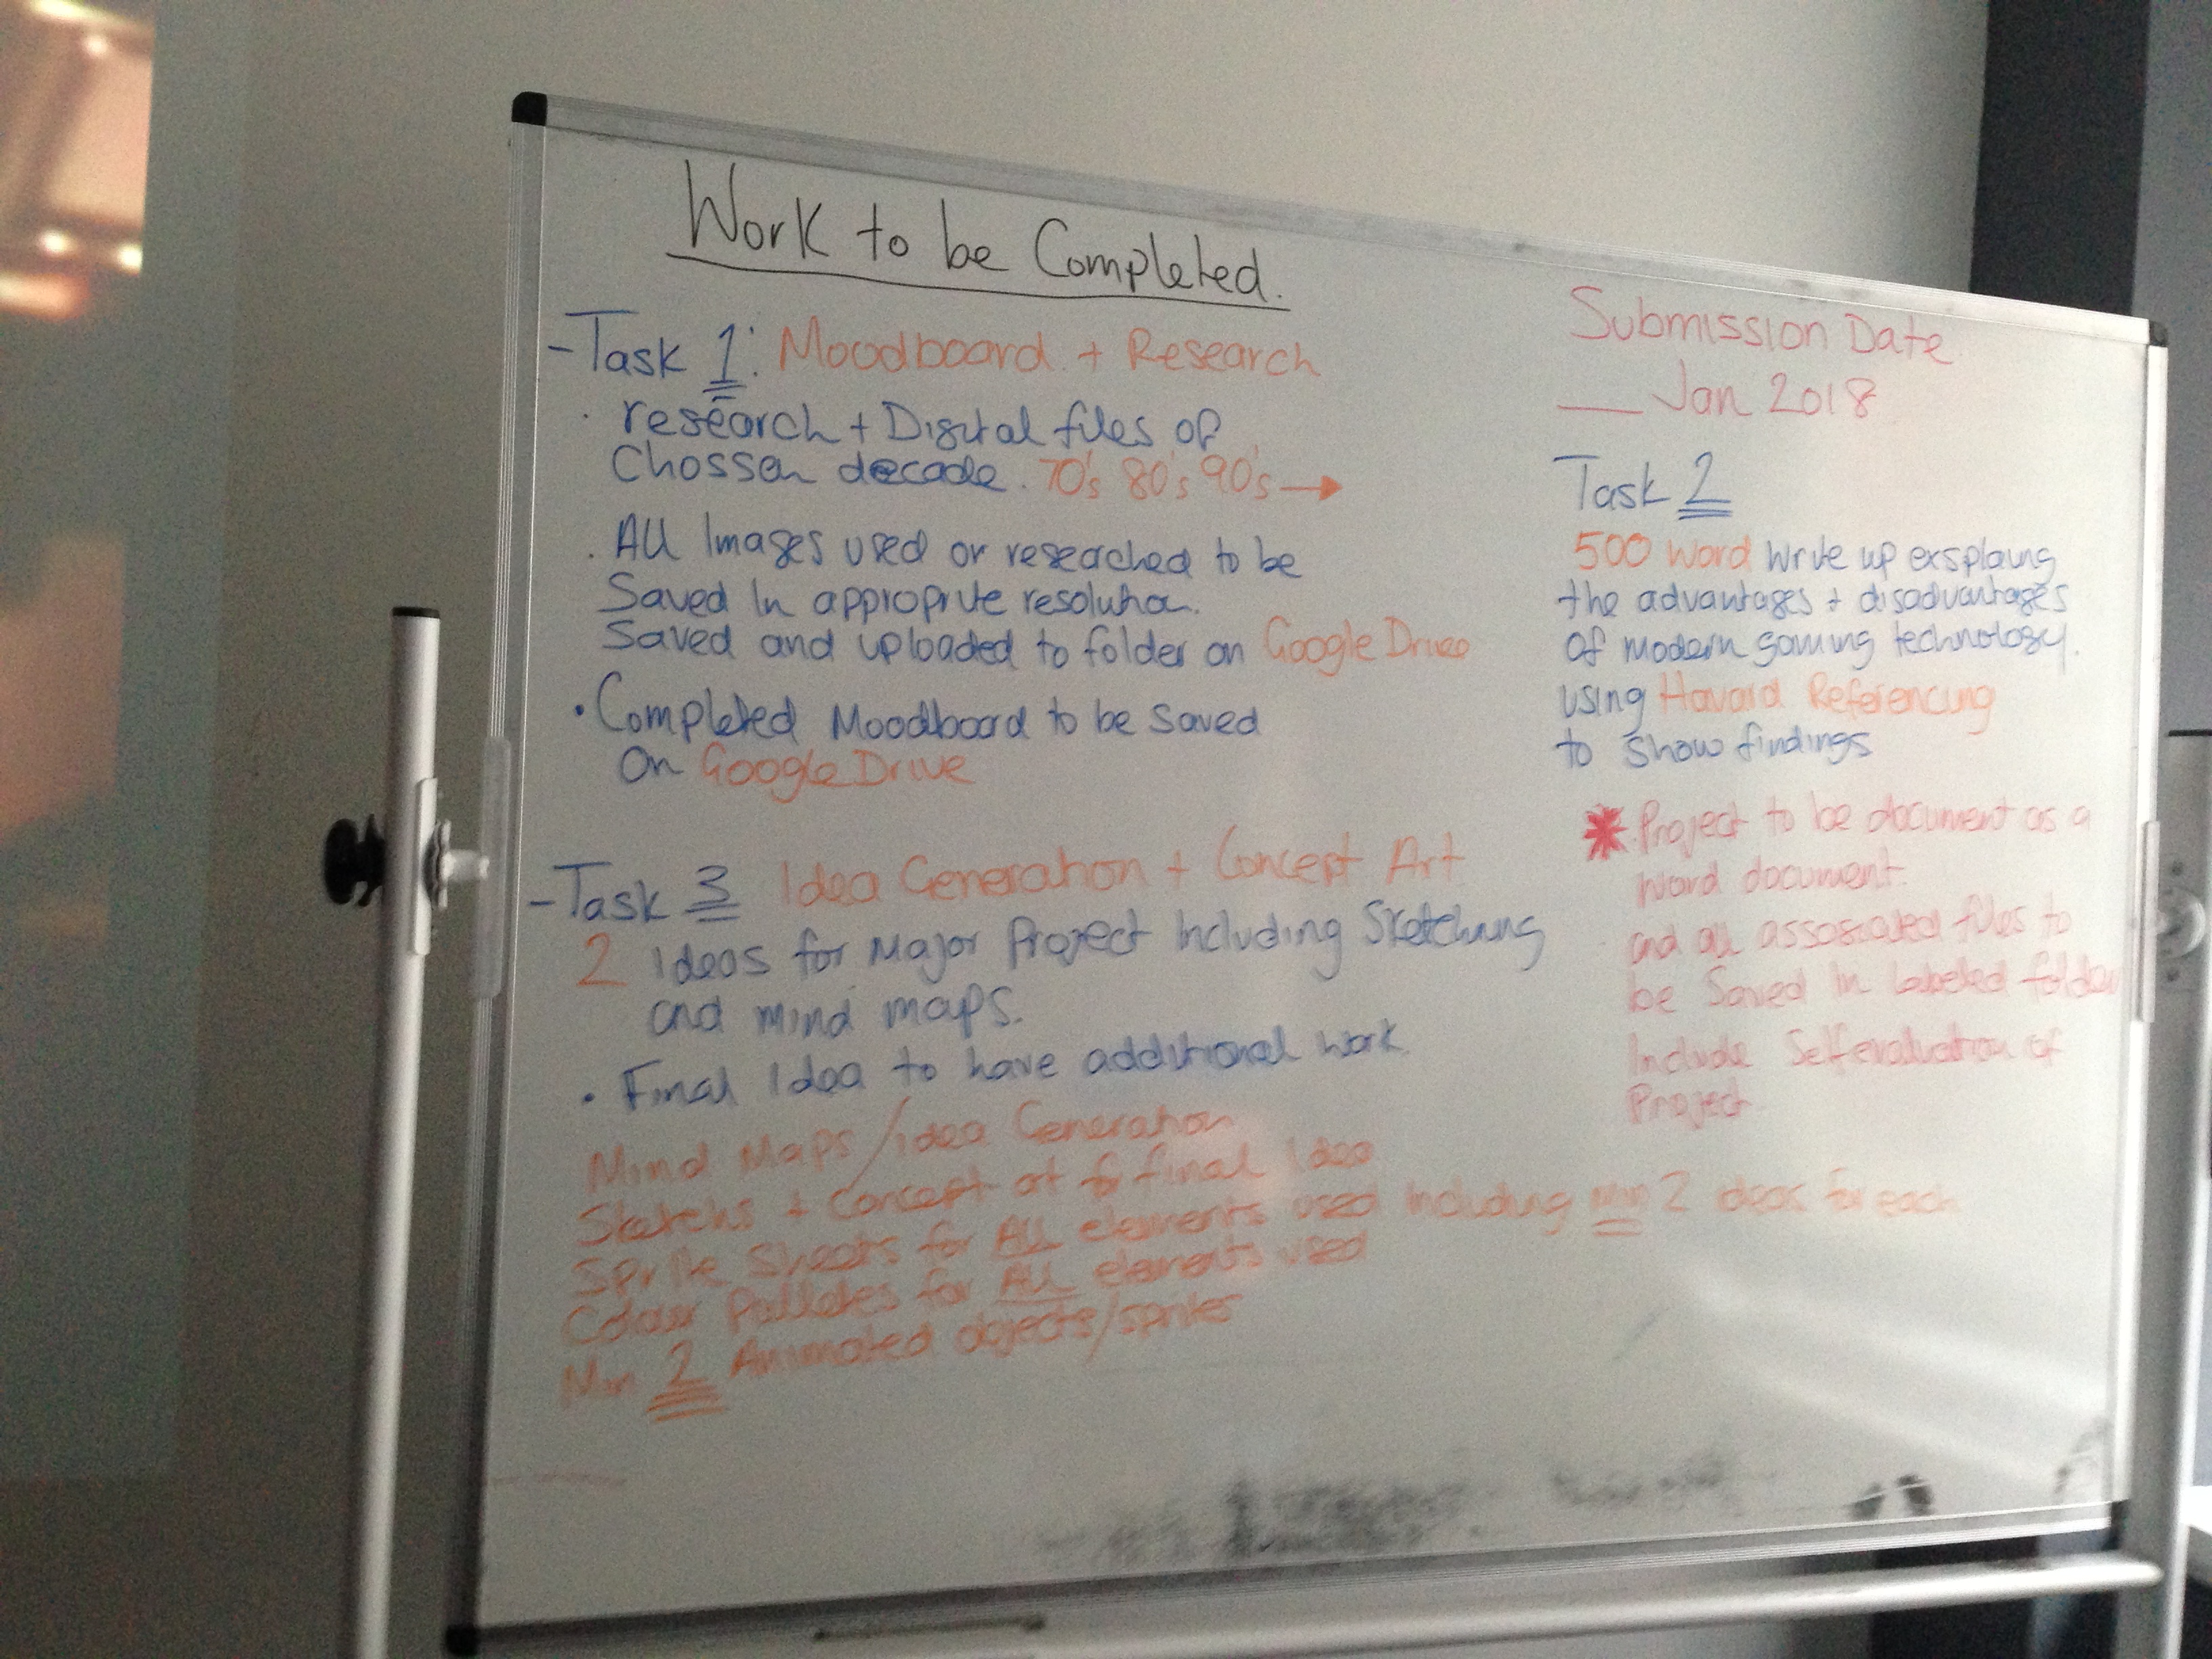 Work to be Completed.
-Task 1: Moodboard + Research
· research + Digital files of
Chossen decade. 70's 80's 90's →
. All Images used or researched to be
Saved In approprite resolution.
Saved and uploaded to folder on Google Drive
• Completed Moodboard to be saved
On Google Drive
-Task 3 Idea Generation + Concept Art
2 Ideas for Major Project Including Sketching
and mind maps.
• Final Idea to have additional work
Mind Maps / idea Generation
Sketchs + Concept art for final Idea
Sprite Sheets for ALL elements used Including Min 2 ideas for each
Colour Pallates for ALL elements used
Min 2 Animated objects/sprites
Submission Date
__ Jan 2018
Task 2
500 word write up exsplaing
the advantages + disadvantages
Of modern gaming technology.
using Havard Referencing
to show findings
* Project to be document as a
Word document.
and all assosiated files to
be Saved in labeled folder
Include Self evaluation of
Project